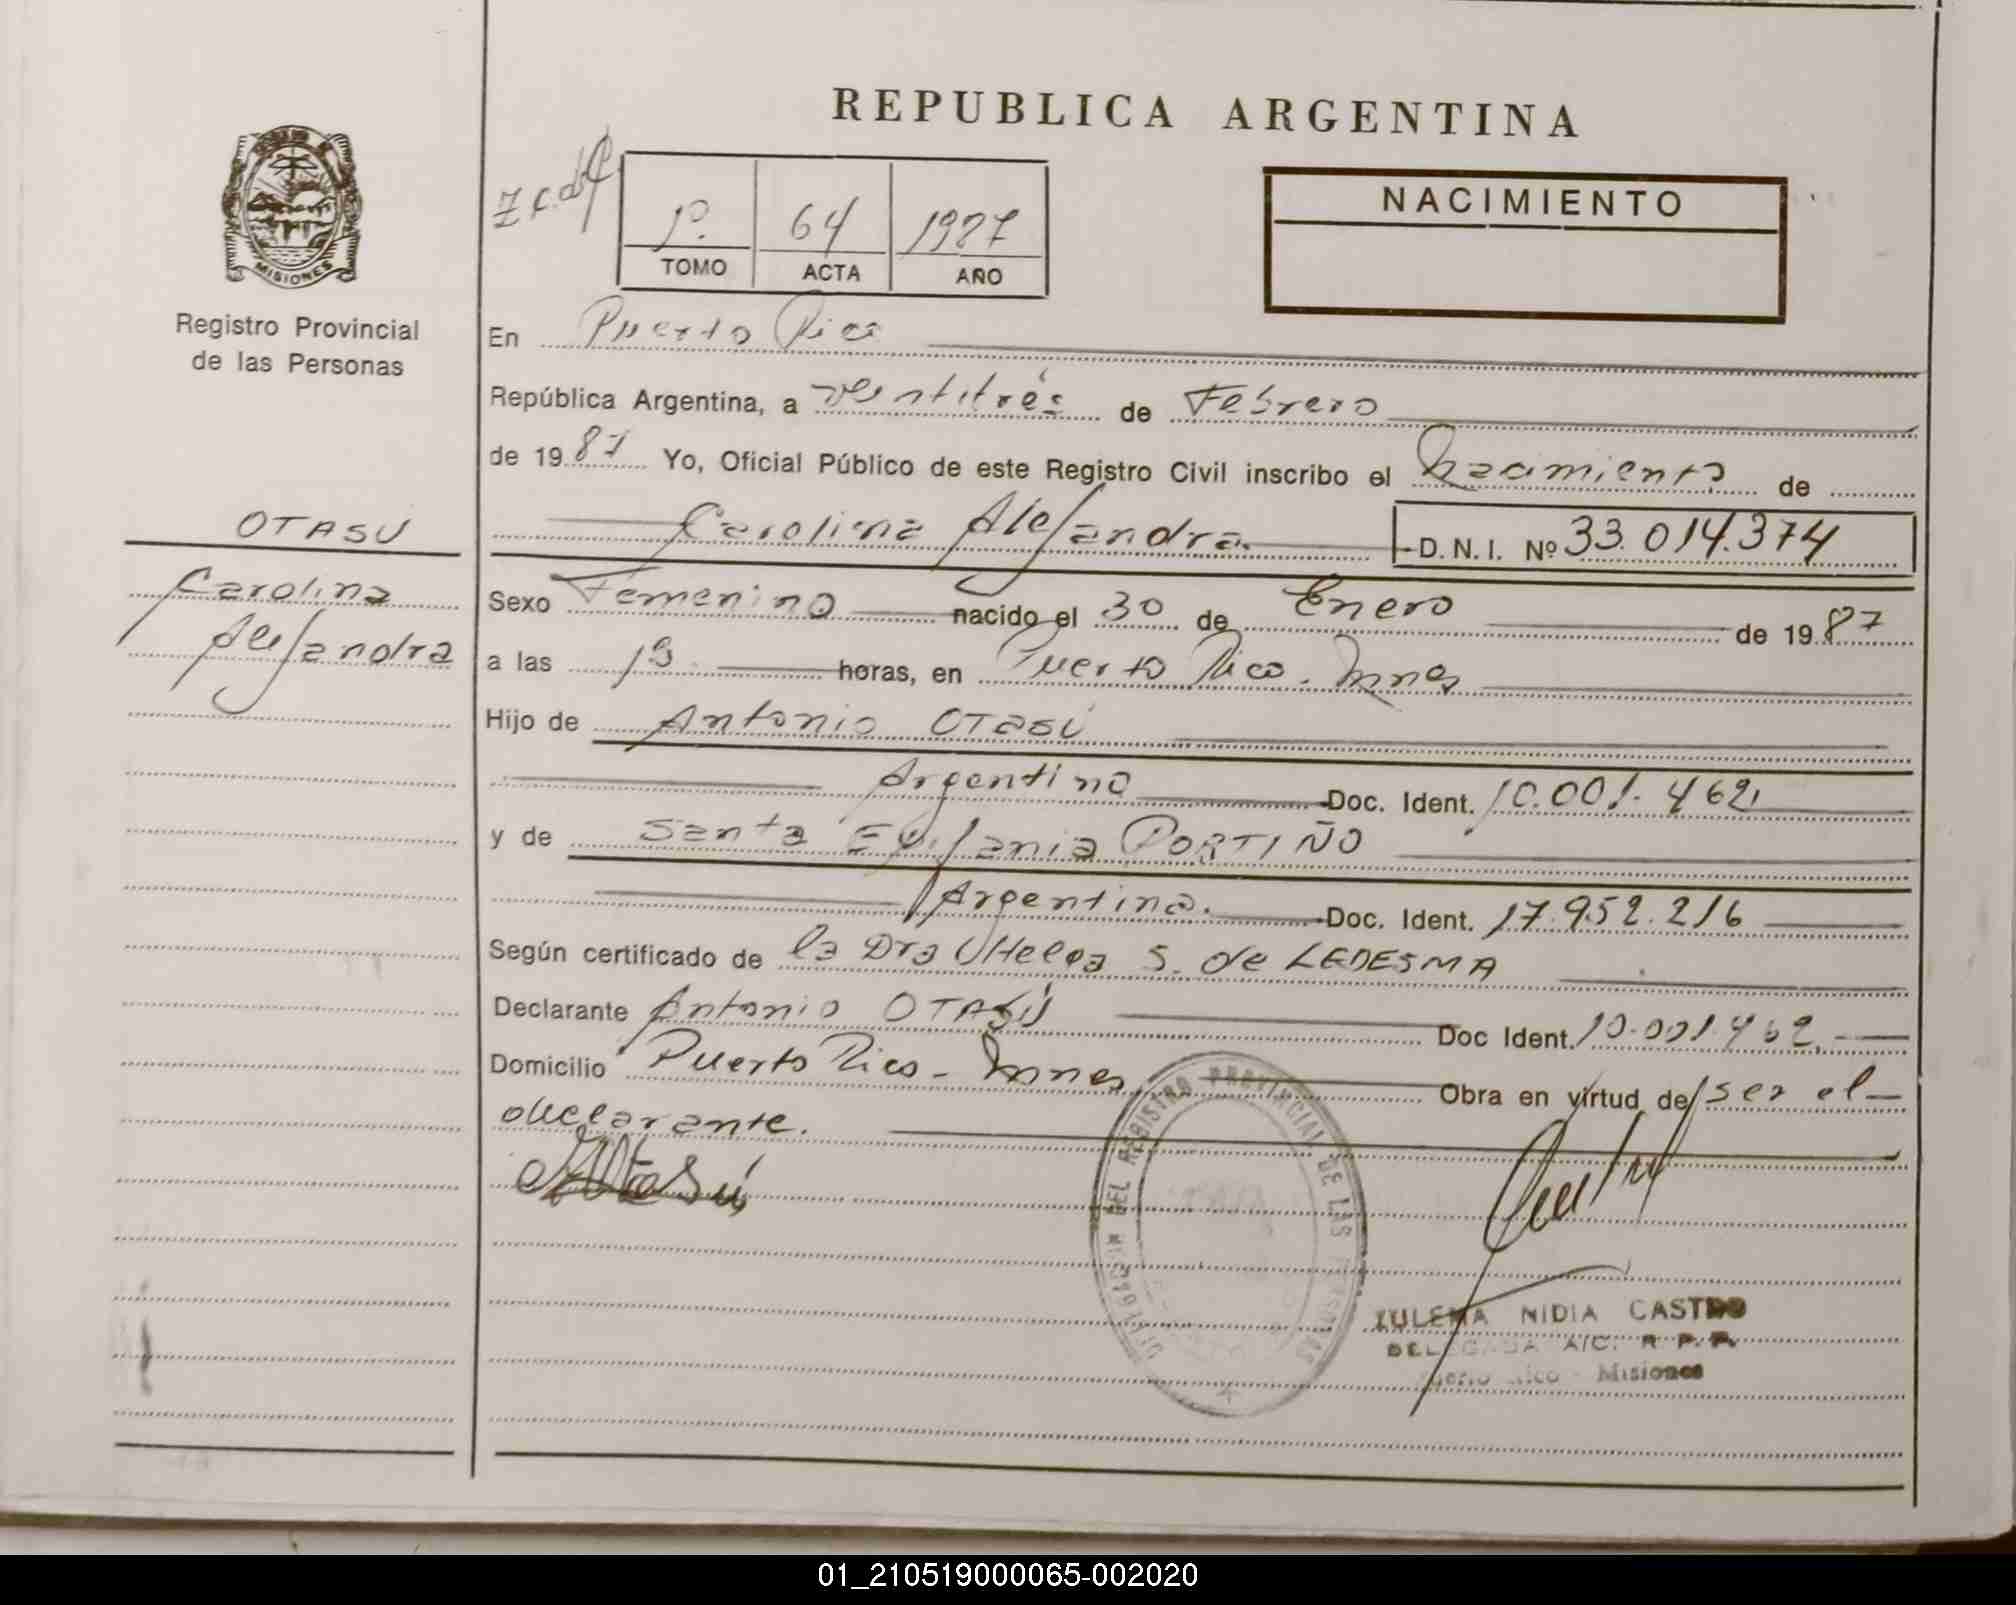 REPUBLICA ARGENTINA
MISIONES
Registro Provincial
de las Personas
1º. 64 1987
TOMO ACTA AÑO
NACIMIENTO
En Puerto Rico
República Argentina, a Veintitrés de Febrero
de 1987 Yo, Oficial Público de este Registro Civil inscribo el Nacimiento de
Carolina Alejandra. D.N.I. Nº 33.014.374
OTASÚ
Carolina
Alejandra
Sexo Femenino nacido el 30 de Enero de 1987
a las horas, en Puerto Rico - Mnes
Hijo de Antonio OTASÚ
Argentino Doc. Ident. 10.001.462
y de Santa Epifania PORTIÑO
Argentina. Doc. Ident. 17.952.216
Según certificado de la Dra S. de LEDESMA
Declarante Antonio OTASÚ Doc Ident. 10.001.462.
Domicilio Puerto Rico - Mnes Obra en virtud de ser el
declarante.
REGISTRO PROVINCIAL DE LAS PERSONAS
ZULEMA NIDIA CASTRO
DELEGADA A/C. R. P. P.
Puerto Rico - Misiones
01_210519000065-002020